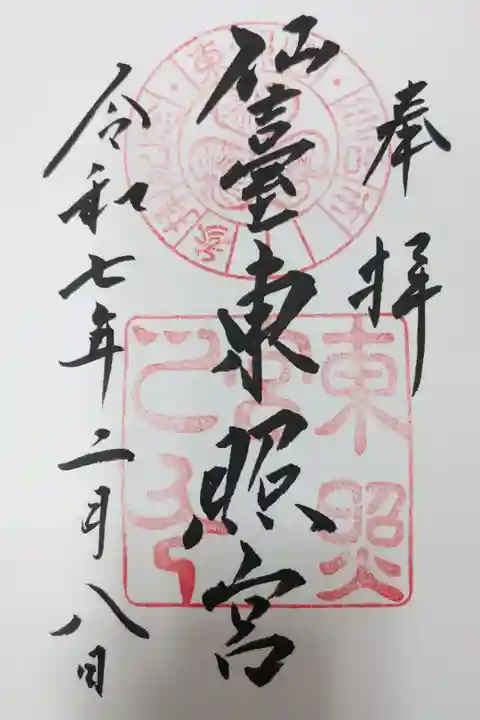 奉拝
仙臺東照宮
令和七年二月八日
東照
宮